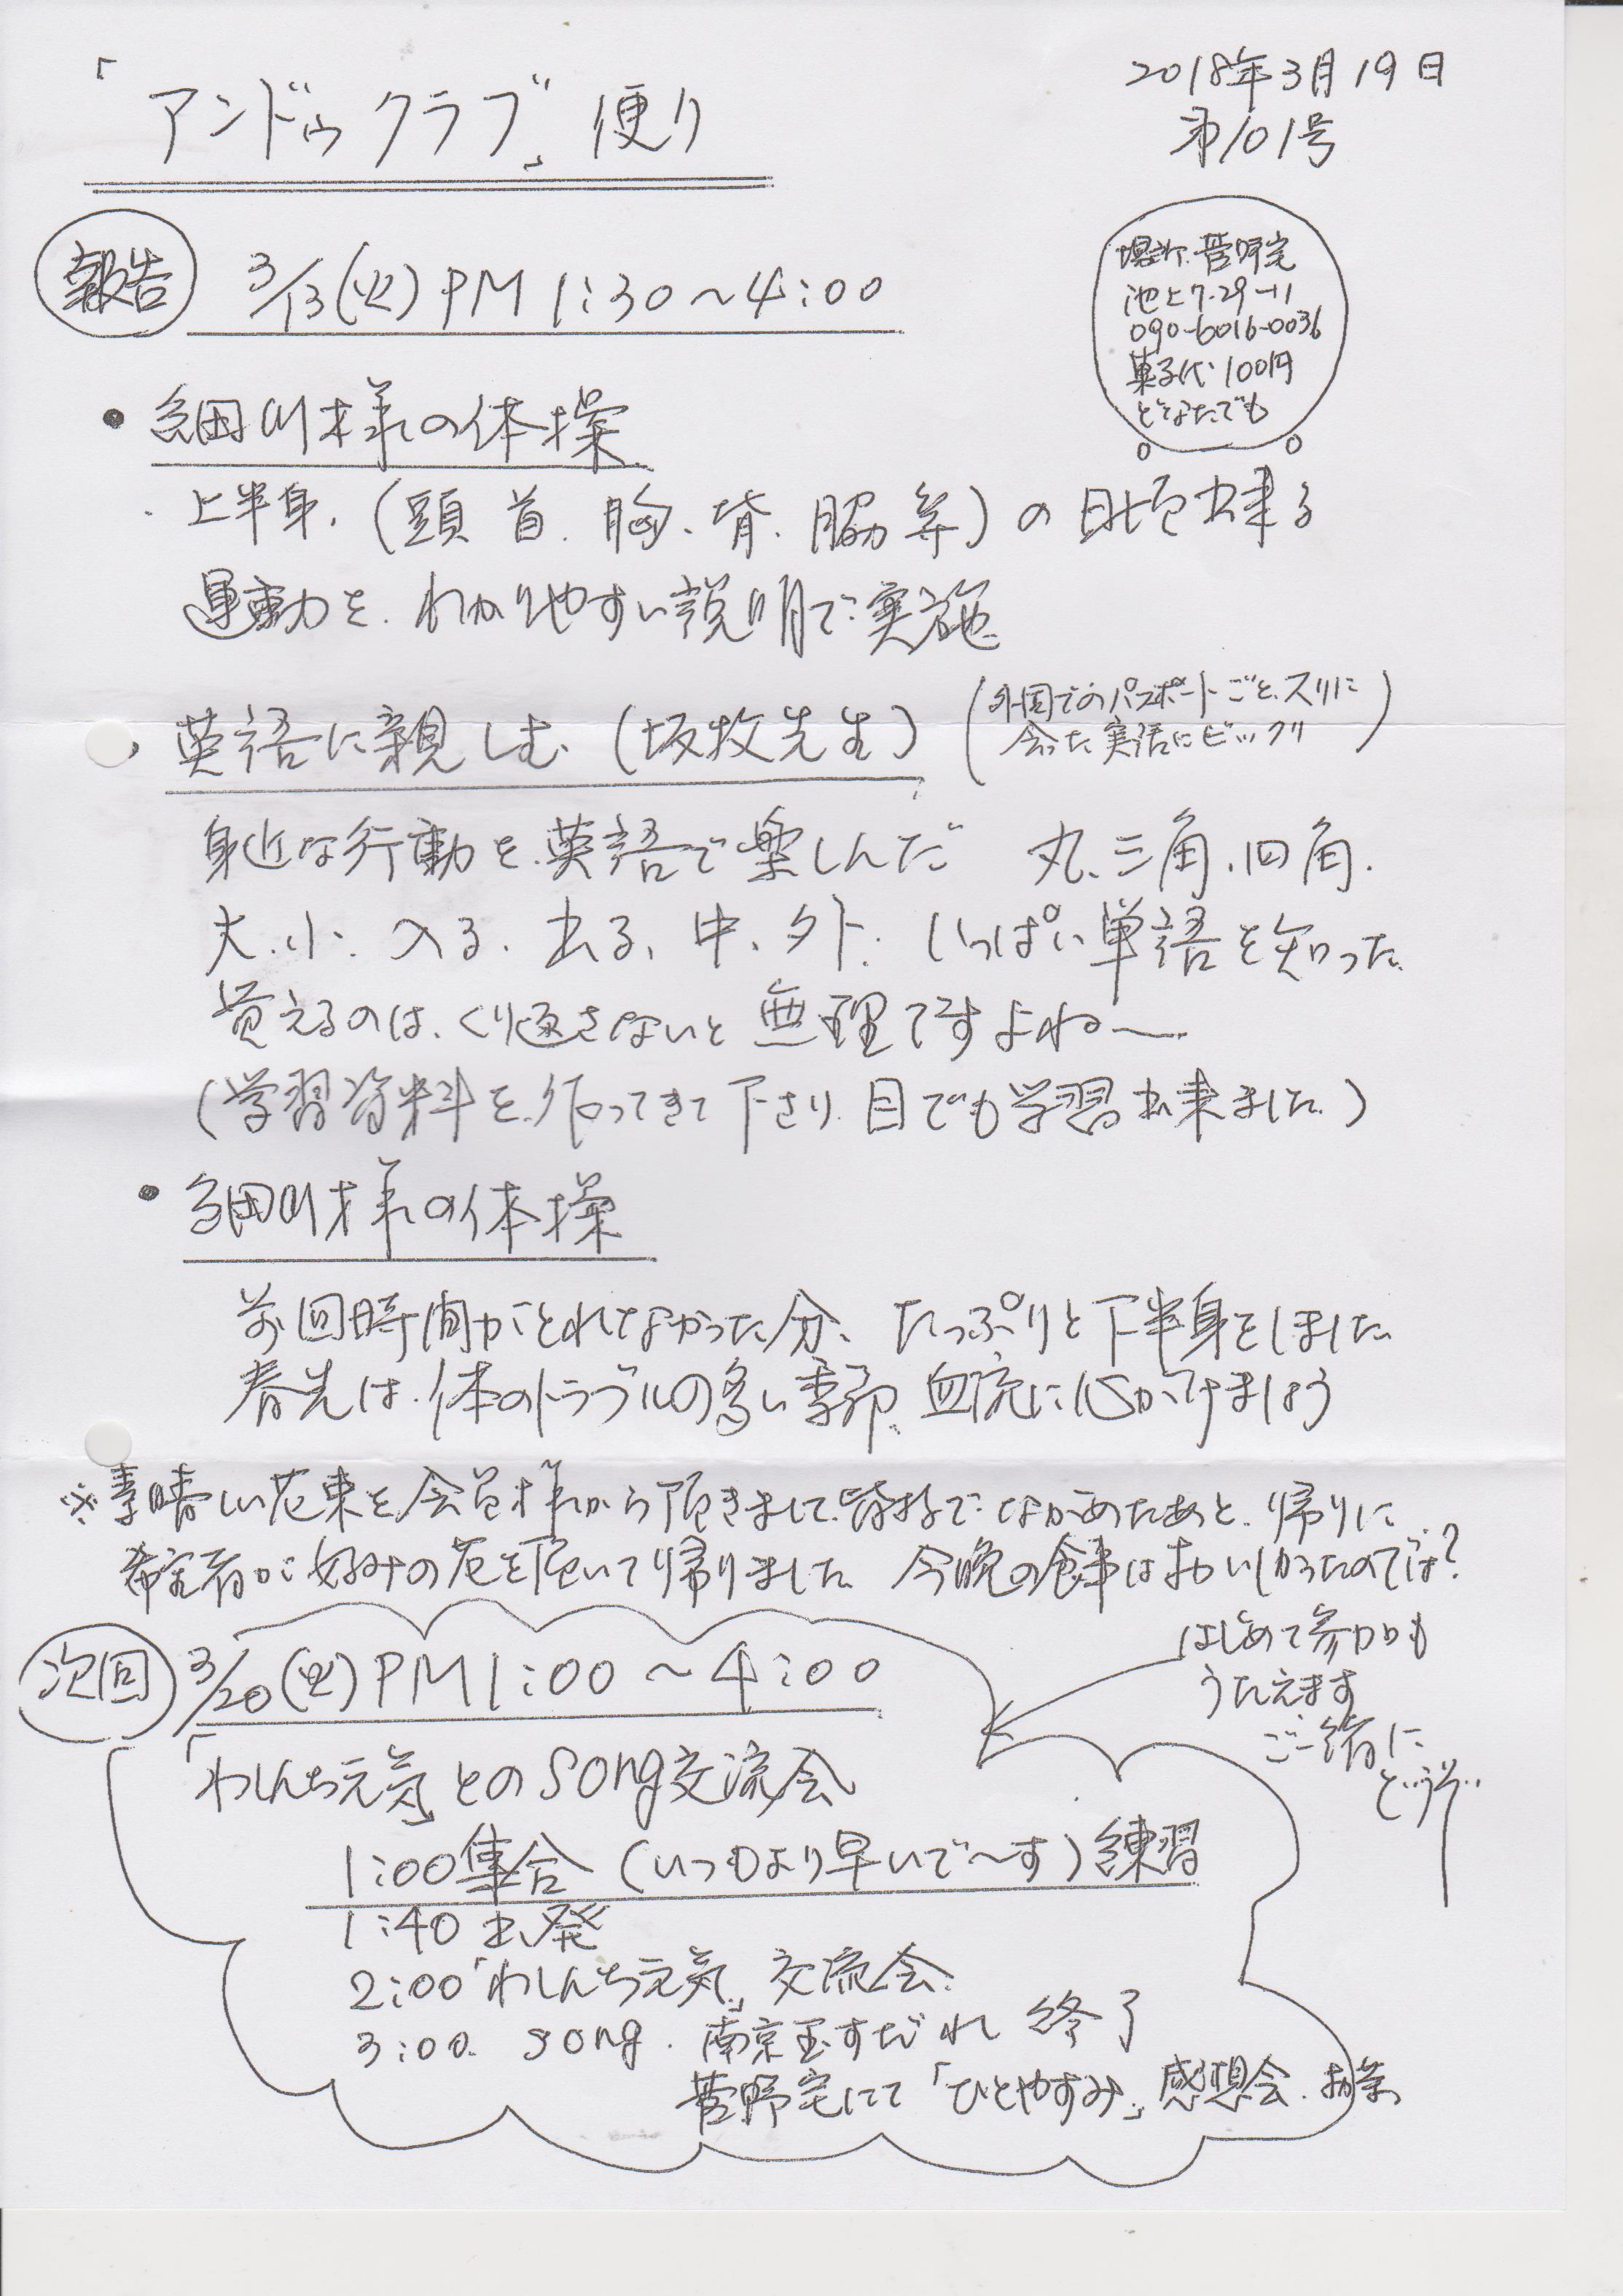 「アンドゥクラブ」便り
2018年3月19日
第101号
場所.菅野宅
池上7-29-11
090-6016-0036
菓子代.100円
どなたでも
報告 3/13(火)PM1:30〜4:00
・細川様の体操
・上半身.(頭 首.胸、背.脇等)の日頃出来る
運動を.わかりやすい説明で実施
・英語に親しむ(坂牧先生)
(外国でのパスポートごと、スリに
会った実話にビックリ)
身近な行動を.英語で楽しんだ 丸、三角、四角.
大、小、入る、出る、中、外.いっぱい単語を知った
覚えるのは、くり返さないと無理ですよね〜
(学習資料を.作ってきて下さり.目でも学習出来ました)
・細川様の体操
前回時間がとれなかった分、たっぷりと下半身をしました
春先は.体のトラブルの多い季節、血流に心がけましょう
※素晴しい花束を会員様から頂きまして.皆様で ながめたあと.帰りに
希望者が好みの花を頂いて帰りました 今晩の食事はおいしかったのでは?
次回 3/20(火)PM1:00〜4:00
はじめて参加も
うたえます
ご一緒に
どうぞ
「わしんち元気」とのsong交流会
1:00集合(いつもより早いで〜す)練習
1:40出発
2:00「わしんち元気」交流会
3:00 song.南京玉すだれ 終了
菅野宅にて「ひとやすみ」感想会.お茶